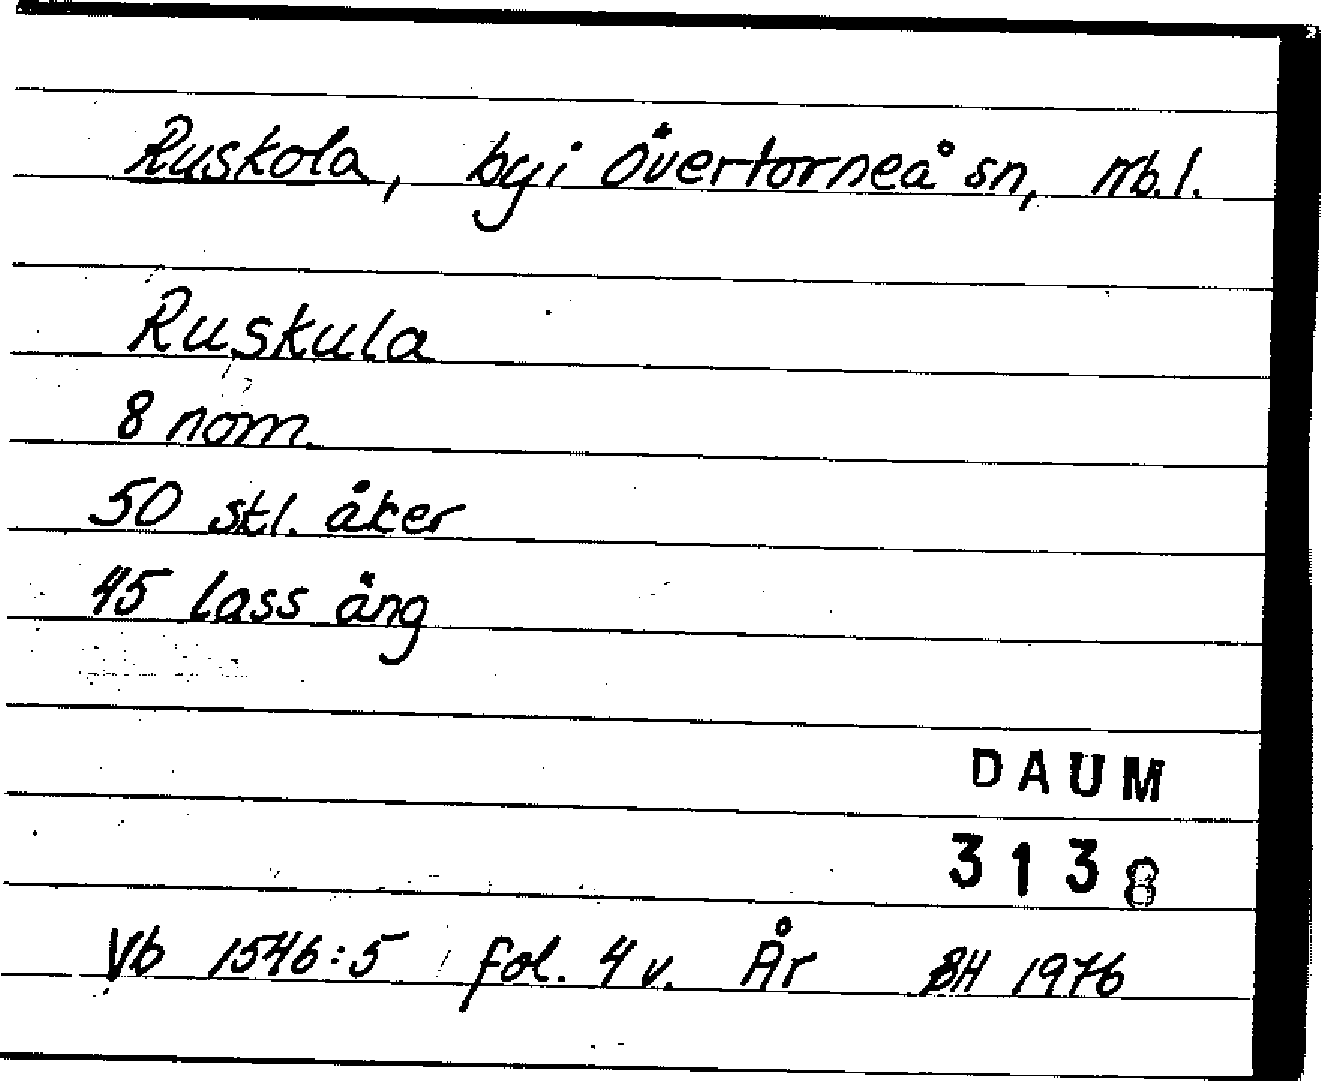 Ruskola, by i Övertorneå sn, Nb. l.
Ruskula
8 nom.
50 skl. åker
45 lass äng
DAUM
3138
Vb 1546:5 fol. 4 v. År BH 1976